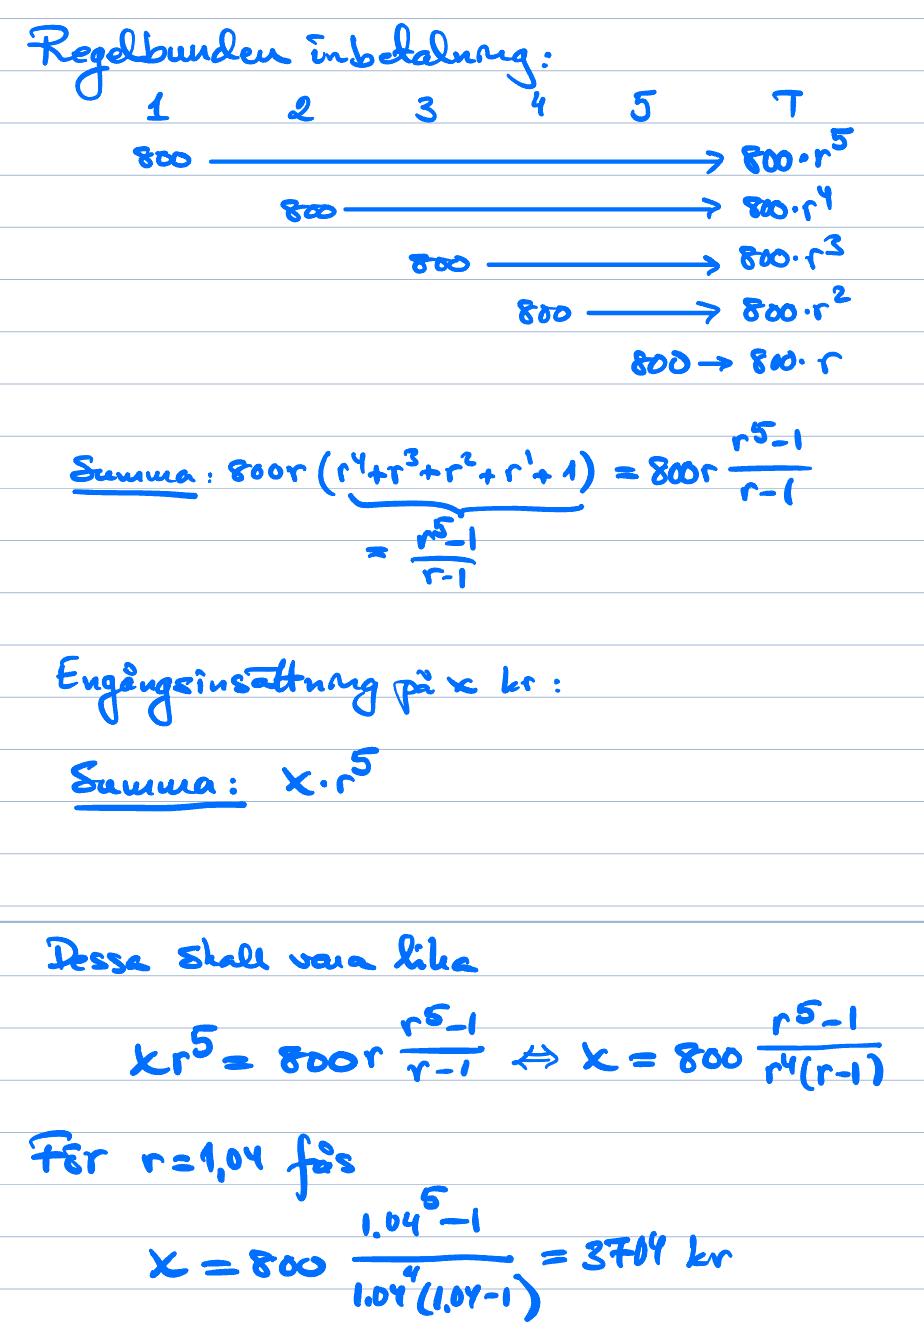 Regelbunden inbetalning:
1 2 3 4 5 T
800 → 800·r^5
800 → 800·r^4
800 → 800·r^3
800 → 800·r^2
800 → 800·r
Summa: 800r (r^4+r^3+r^2+r^1+1) = 800r (r^5-1)/(r-1)
= (r^5-1)/(r-1)
Engångsinsättning på x kr:
Summa: x·r^5
Dessa skall vara lika
xr^5 = 800r (r^5-1)/(r-1) ⇔ x = 800 (r^5-1)/(r^4(r-1))
För r=1,04 fås
x = 800 (1.04^5-1)/(1.04^4(1.04-1)) = 3704 kr